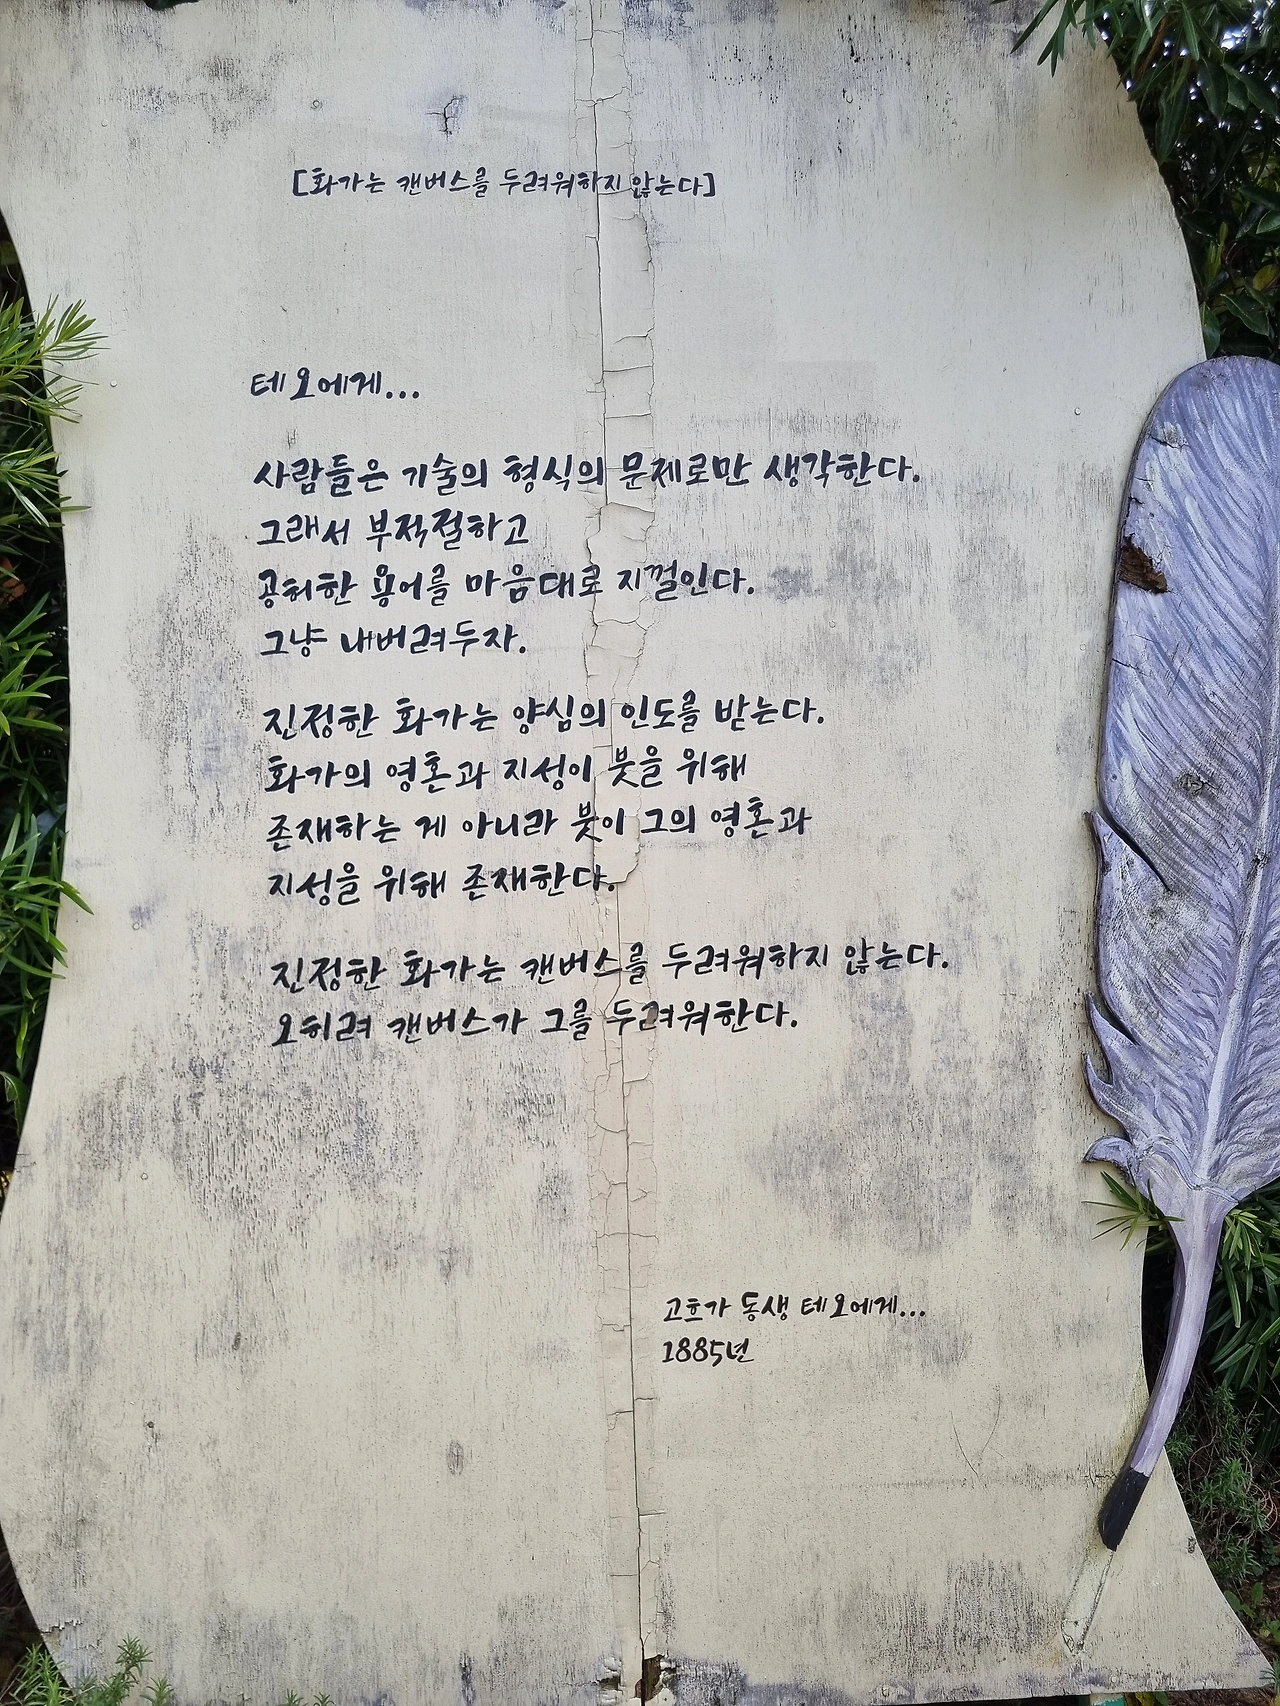 [화가는 캔버스를 두려워하지 않는다]
테오에게...
사람들은 기술의 형식의 문제로만 생각한다.
그래서 부적절하고
공허한 용어를 마음대로 지껄인다.
그냥 내버려두자.
진정한 화가는 양심의 인도를 받는다.
화가의 영혼과 지성이 붓을 위해
존재하는 게 아니라 붓이 그의 영혼과
지성을 위해 존재한다.
진정한 화가는 캔버스를 두려워하지 않는다.
오히려 캔버스가 그를 두려워한다.
고흐가 동생 테오에게...
1885년